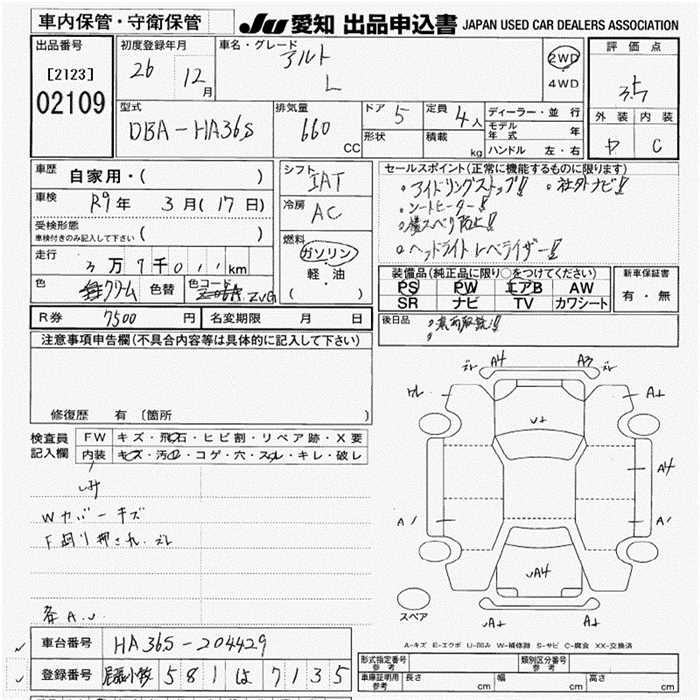 車内保管・守衛保管
JU 愛知 出品申込書 JAPAN USED CAR DEALERS ASSOCIATION
出品番号
[2123]
02109
初度登録年月
26 12月
車名・グレード
アルト
L
2WD
4WD
評価点
3.5
外装 内装
C
型式
DBA-HA36S
排気量
660 CC
ドア 5
形状
定員 4人
積載 kg
ディーラー・並行
モデル年式 年
ハンドル 左・右
車歴 自家用・( )
車検 R9年 3月(17日)
受検形態
車検付きのみ記入して下さい ( )
走行 3万7千011km
色 クリーム 色替 色コード ZVG
R券 7500円 名変期限 月 日
シフト IAT
冷房 AC
燃料
ガソリン
軽・油
( )
セールスポイント(正常に機能するものに限ります)
。アイドリングストップ!! 。社外ナビ!!
。シートヒーター!!
。横スベリ防止!!
。ヘッドライトレベライザー!!
装備品(純正品に限り○をつけてください)
PS PW エアB AW
SR ナビ TV カワシート
新車保証書
有・無
後日品
注意事項申告欄(不具合内容等は具体的に記入して下さい)
修復歴 有 〔箇所 〕
検査員記入欄
FW キズ・飛石・ヒビ割・リペア跡・X要
内装 キズ・汚・コゲ・穴・スレ・キレ・破レ
Wカバーキズ
F廻り押され、ズレ
各A.U
ズレ A4 A3 ズレ
A+
U+
A4
A1 A1
UA4
UA+ A+
スペア
A-キズ E-エクボ U-凹み W-補修跡 S-サビ C-腐食 XX-交換済
車台番号 HA36S-204429
登録番号 尾張小牧 581 は 7135
形式指定番号 参考
類別区分番号 参考
車庫証明用 参考 長さ cm 幅 cm 高さ cm